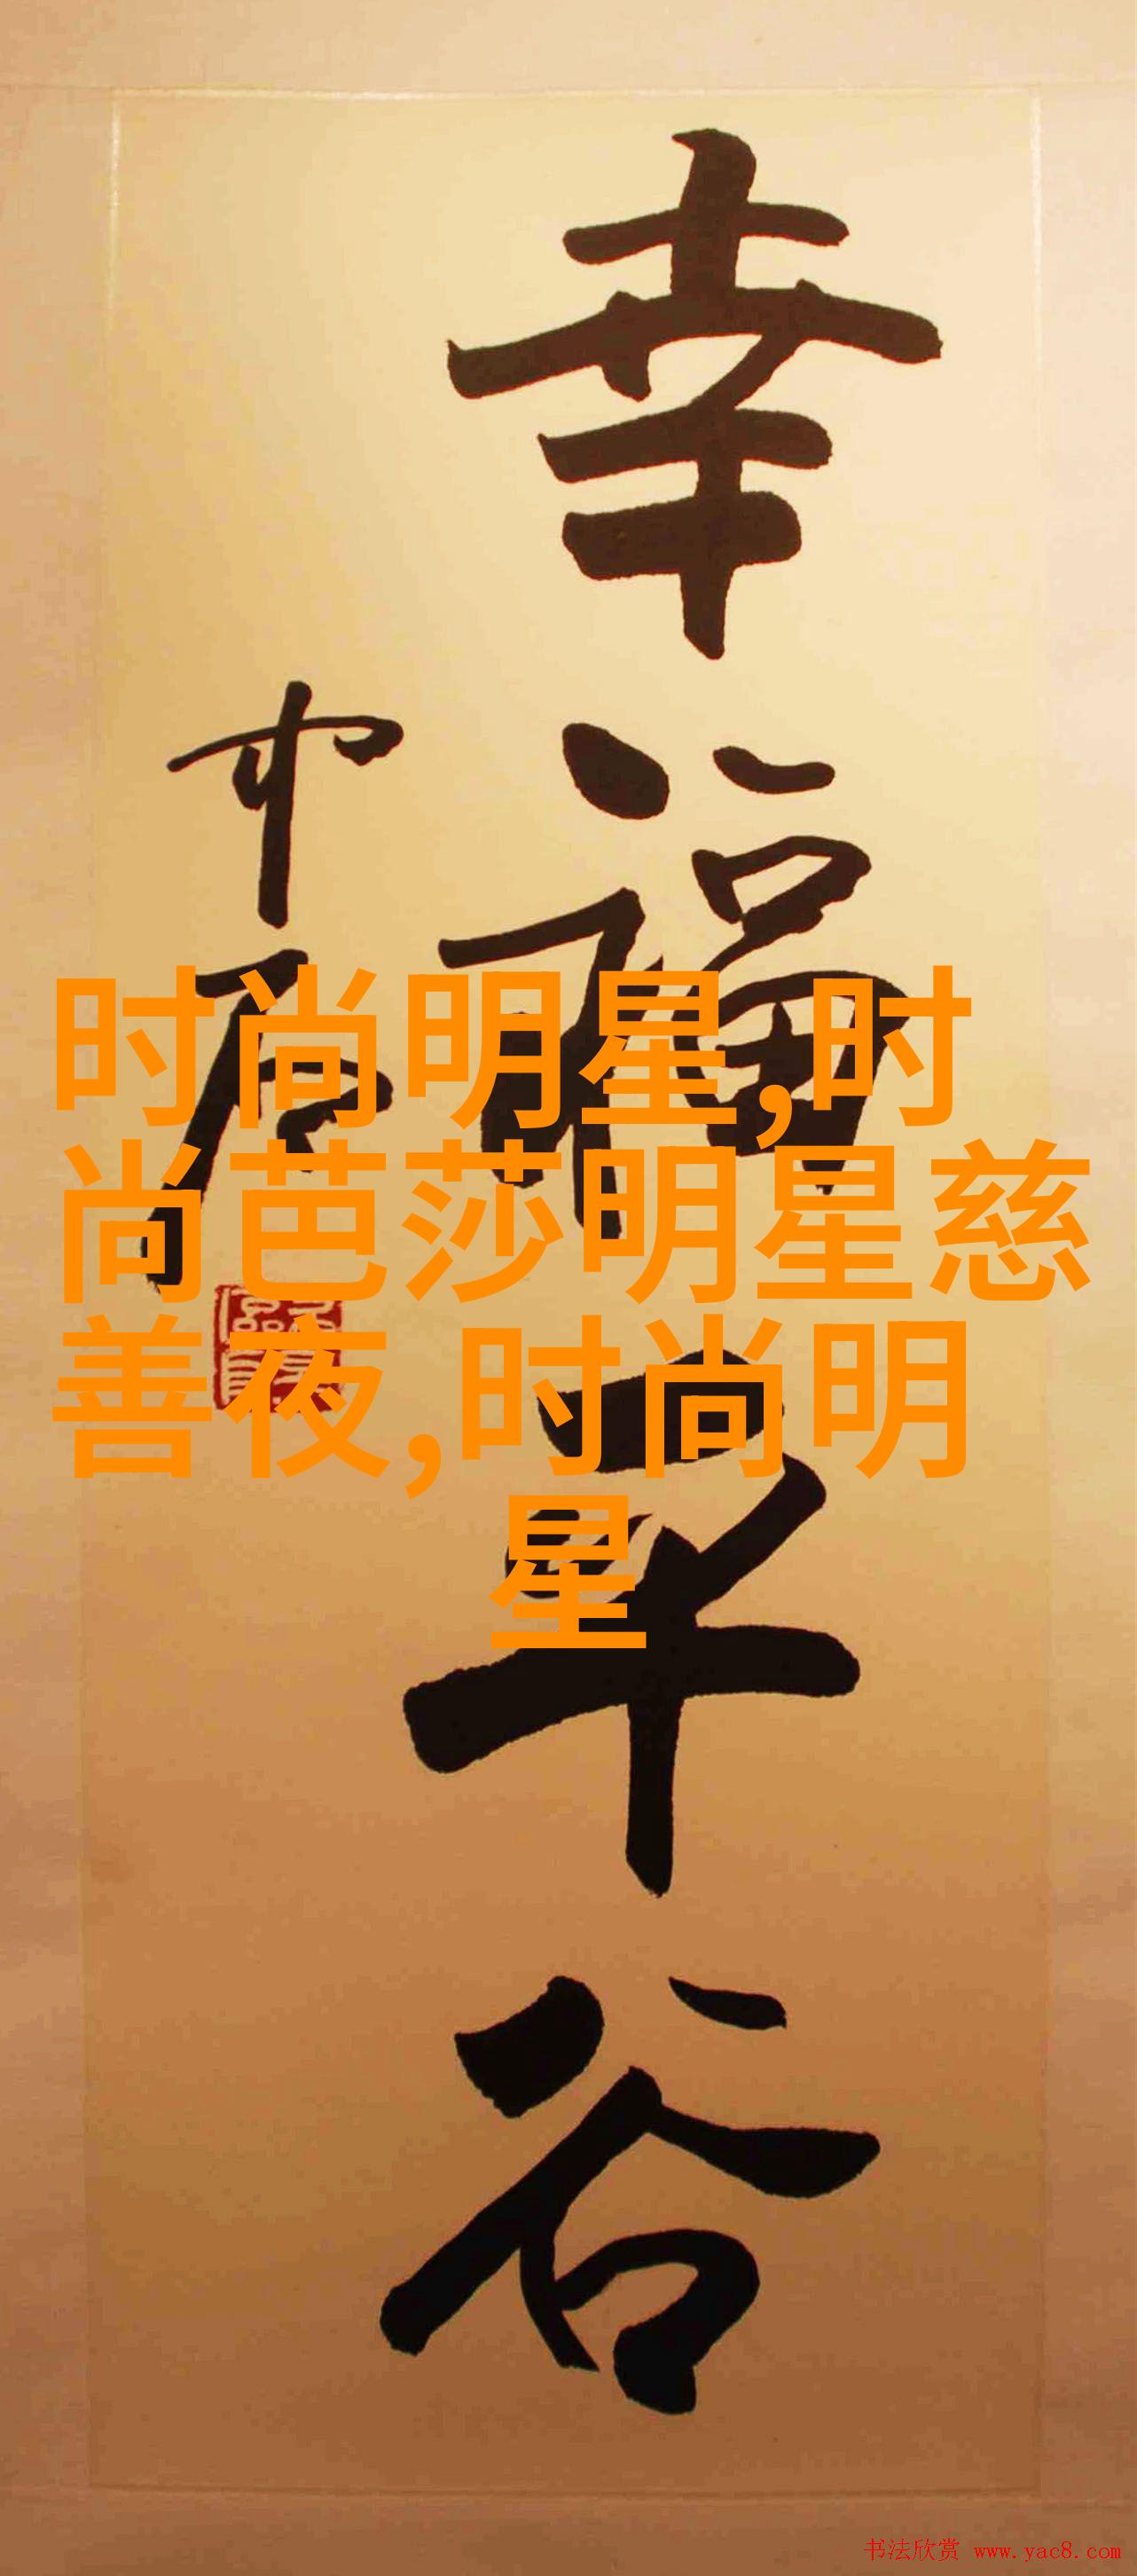 幸福平谷
中石
时尚明星,时
尚芭莎明星慈
善夜,时尚明
星
书法欣赏 www.yac8.com